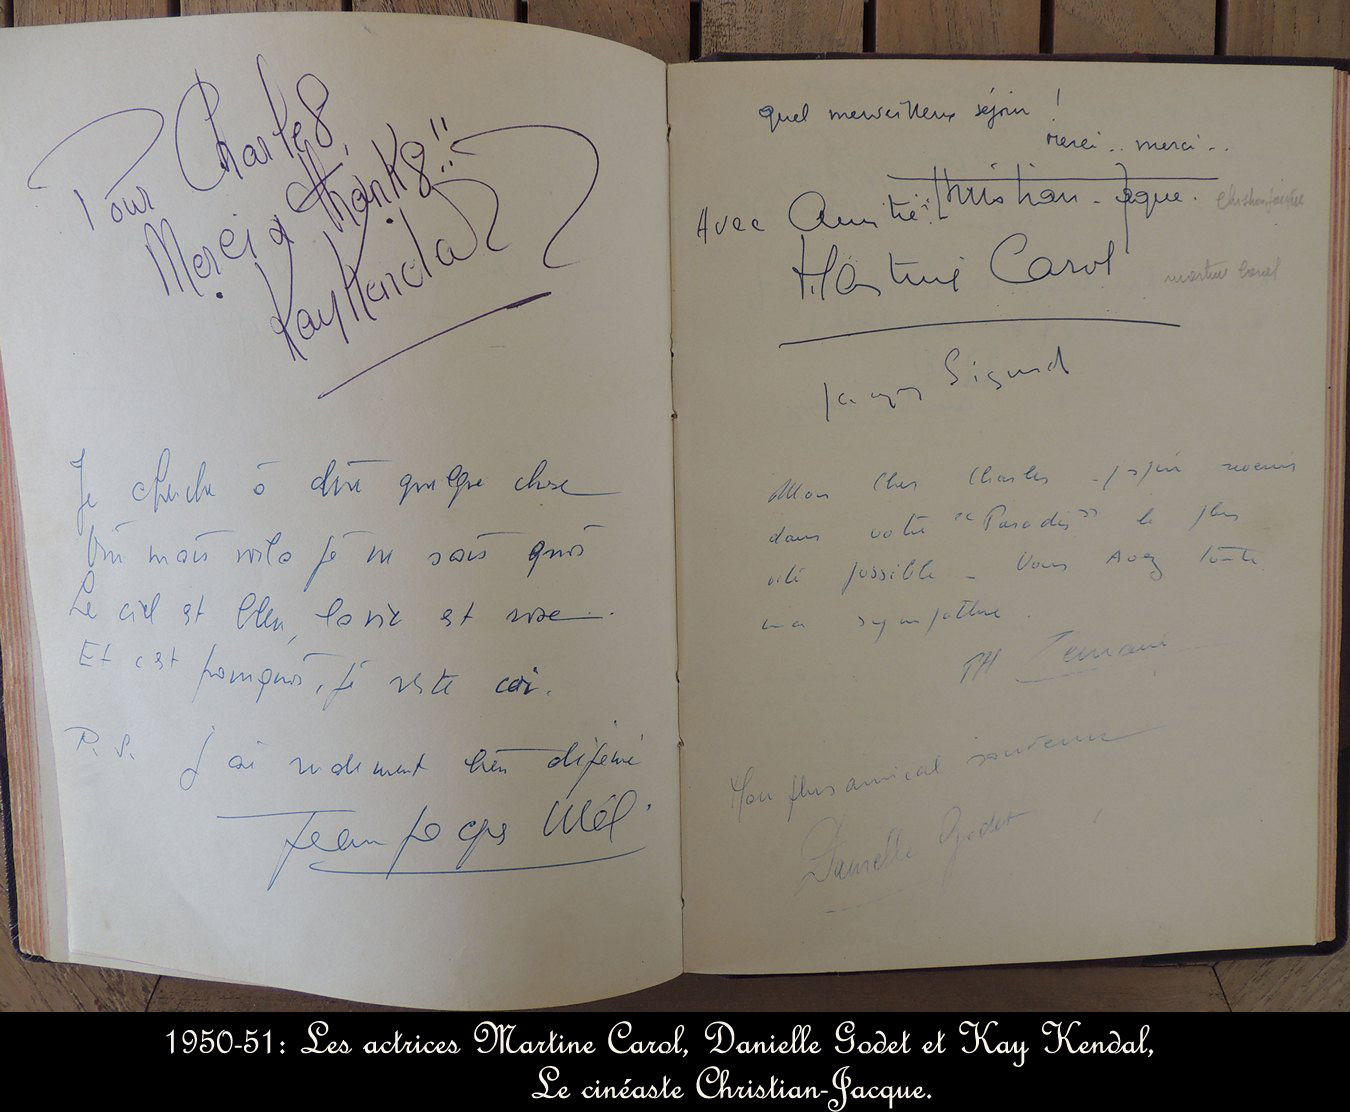 Pour Charles,
Merci & thanks!!
Kay Kendall
Je cherche à dire quelque chose
Oui mais voilà je ne sais quoi
Le ciel est bleu, la vie est rose...
Et c'est pourquoi, je reste coi.
P.S. J'ai rudement bien déjeuné
Jean Jacques
quel merveilleux séjour !
merci.. merci..
Christian-Jaque.
Christian Jacque
Avec Amitié
Martine Carol
martine Carol
Jacques Sigurd
Mon cher Charles j'espère revenir
dans votre "Paradis" le plus
vite possible - Vous avez toute
ma sympathie.
TH
Mon plus amical souvenir
Danielle Godet
1950-51: Les actrices Martine Carol, Danielle Godet et Kay Kendal,
Le cinéaste Christian-Jacque.